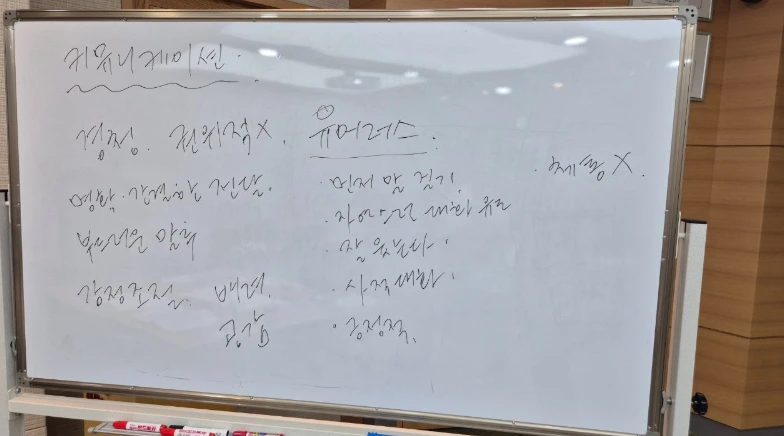 커뮤니케이션.
경청. 권위적X. 유머러스.
명확·간결한 전달.
부드러운 말투
감정조절. 배려.
공감
· 먼저 말 걸기.
· 자연스런 대화 유도
· 잘 웃는다.
· 사적대화.
· 긍정적.